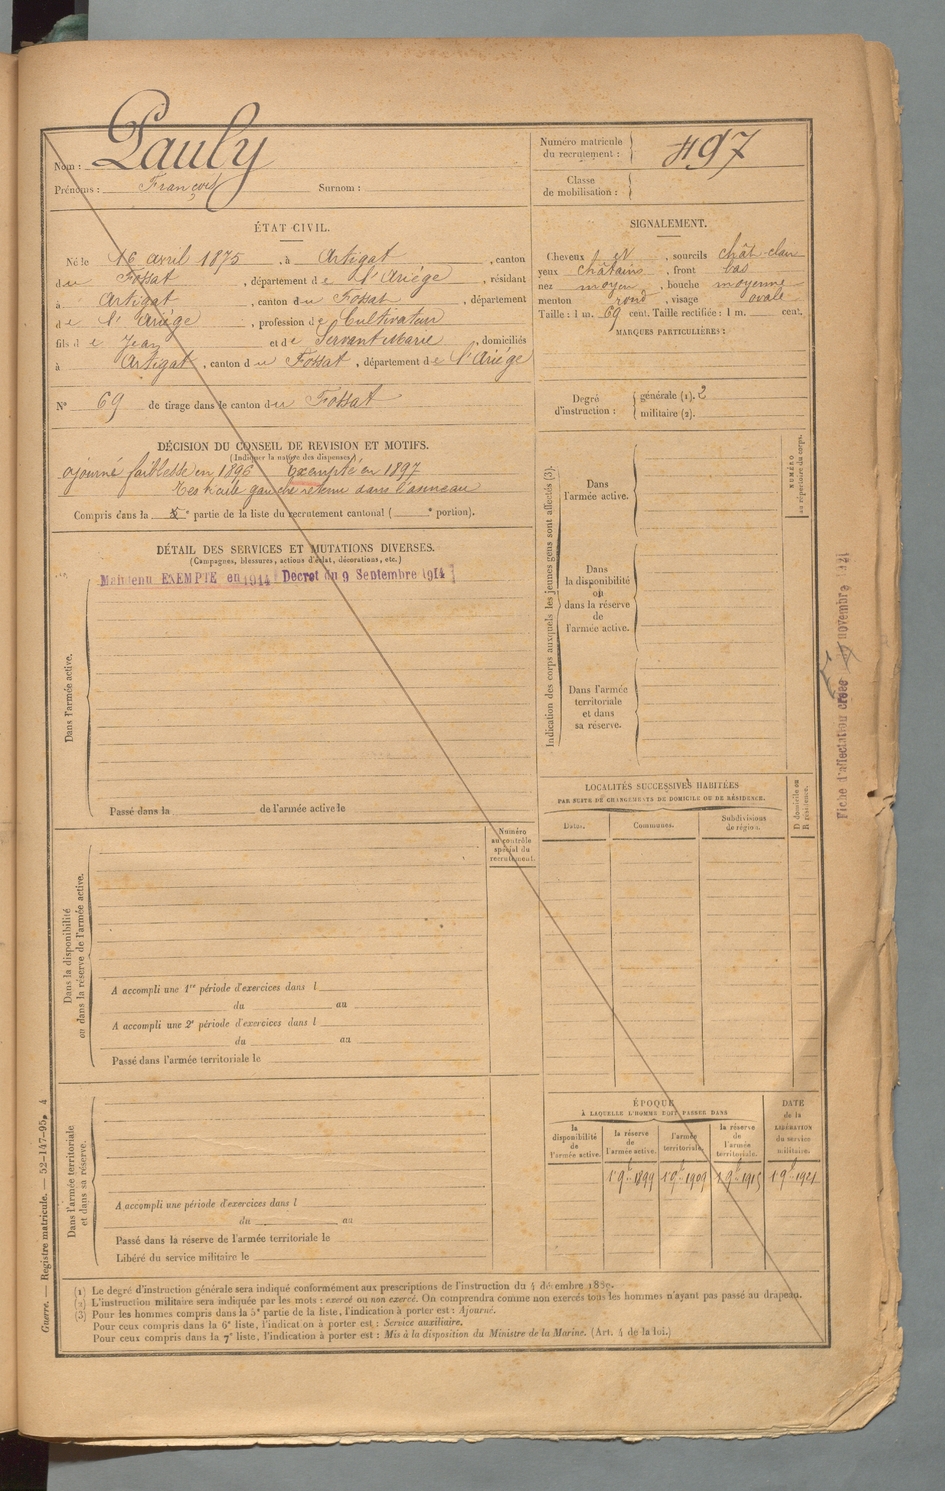 Nom : Pauly
Prénoms : François Surnom :
Numéro matricule du recrutement : 497
Classe de mobilisation :
ÉTAT CIVIL.
Né le 16 avril 1875, à Artigat, canton
du Fossat, département de l'Ariége, résidant
à Artigat, canton du Fossat, département
de l'Ariége, profession de Cultivateur
fils de Jean et de Servant Marie, domiciliés
à Artigat, canton du Fossat, département de l'Ariége
N° 69 de tirage dans le canton du Fossat
SIGNALEMENT.
Cheveux , sourcils chât-clair
yeux châtains, front bas
nez moyen, bouche moyenne
menton rond, visage ovale
Taille : 1 m. 69 cent. Taille rectifiée : 1 m. cent.
MARQUES PARTICULIÈRES :
Degré d'instruction : générale (1). 2
militaire (2).
DÉCISION DU CONSEIL DE REVISION ET MOTIFS.
(Indiquer la nature des dispenses.)
ajourné faiblesse en 1896 Exempté en 1897
Testicule gauche retenu dans l'anneau
Compris dans la 5e partie de la liste du recrutement cantonal ( e portion).
DÉTAIL DES SERVICES ET MUTATIONS DIVERSES.
(Campagnes, blessures, actions d'éclat, décorations, etc.)
Maintenu EXEMPTE en 1914 Decret du 9 Septembre 1914
Dans l'armée active.
Passé dans la de l'armée active le
Numéro au contrôle spécial du recrutement.
Dans la disponibilité ou dans la réserve de l'armée active.
A accompli une 1re période d'exercices dans l
du au
A accompli une 2e période d'exercices dans l
du au
Passé dans l'armée territoriale le
Dans l'armée territoriale et dans sa réserve.
A accompli une période d'exercices dans l
du au
Passé dans la réserve de l'armée territoriale le
Libéré du service militaire le
Indication des corps auxquels les jeunes gens sont affectés (3).
NUMÉRO au répertoire du corps.
Dans l'armée active.
Dans la disponibilité ou dans la réserve de l'armée active.
Dans l'armée territoriale et dans sa réserve.
LOCALITÉS SUCCESSIVES HABITÉES
PAR SUITE DE CHANGEMENTS DE DOMICILE OU DE RÉSIDENCE.
Dates. Communes. Subdivisions de région. D domicile ou R résidence.
ÉPOQUE
À LAQUELLE L'HOMME DOIT PASSER DANS
la disponibilité de l'armée active. la réserve de l'armée active. l'armée territoriale. la réserve de l'armée territoriale. DATE de la LIBÉRATION du service militaire.
1 9bre 1899 1 9bre 1909 1 9bre 1915 1 9bre 1921
Fiche d'affectation créée novembre
Guerre. — Registre matricule. — 52-147-95. 4
(1) Le degré d'instruction générale sera indiqué conformément aux prescriptions de l'instruction du 4 décembre 1889.
(2) L'instruction militaire sera indiquée par les mots : exercé ou non exercé. On comprendra comme non exercés tous les hommes n'ayant pas passé au drapeau.
(3) Pour les hommes compris dans la 5e partie de la liste, l'indication à porter est : Ajourné.
Pour ceux compris dans la 6e liste, l'indication à porter est : Service auxiliaire.
Pour ceux compris dans la 7e liste, l'indication à porter est : Mis à la disposition du Ministre de la Marine. (Art. 4 de la loi.)